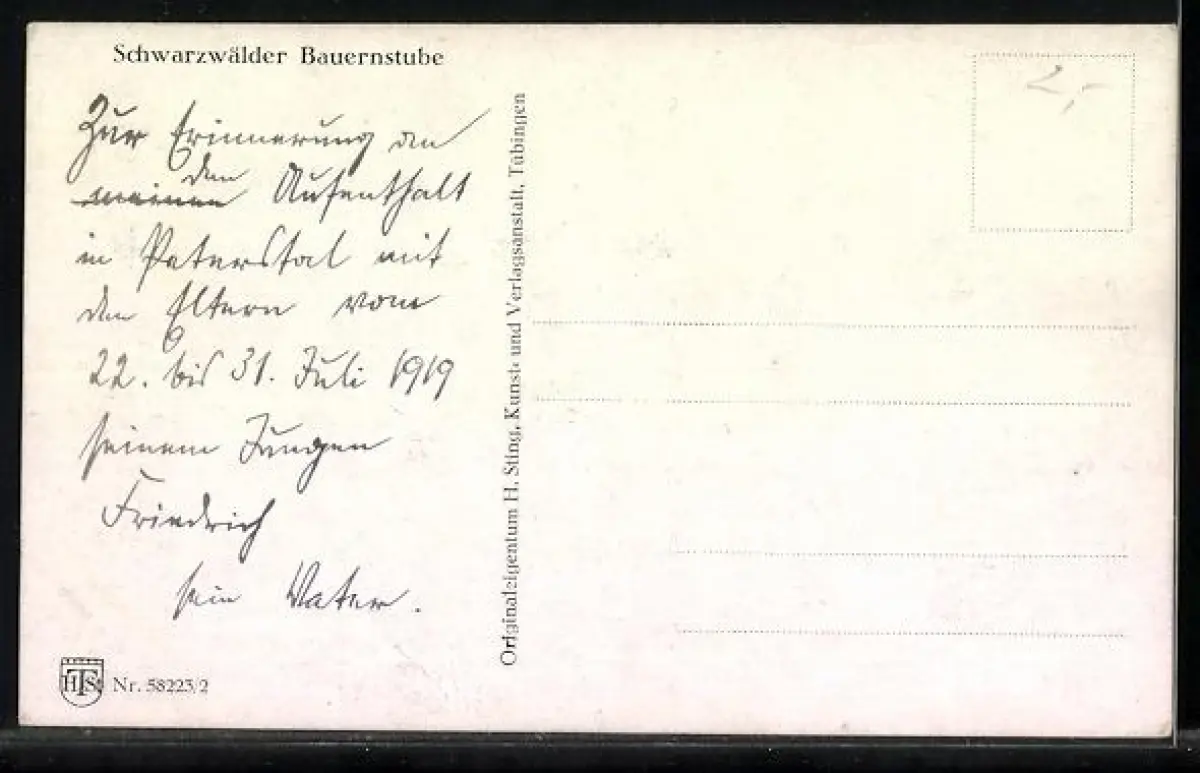 Schwarzwälder Bauernstube
Zur Erinnerung an
den
meinen Aufenthalt
in Peterstal mit
den Eltern vom
22. bis 31. Juli 1919
seinem Jungen
Friedrich
sein Vater.
HTSt Nr. 58223/2
Originaleigentum H. Sting, Kunst- und Verlagsanstalt, Tübingen
2,-